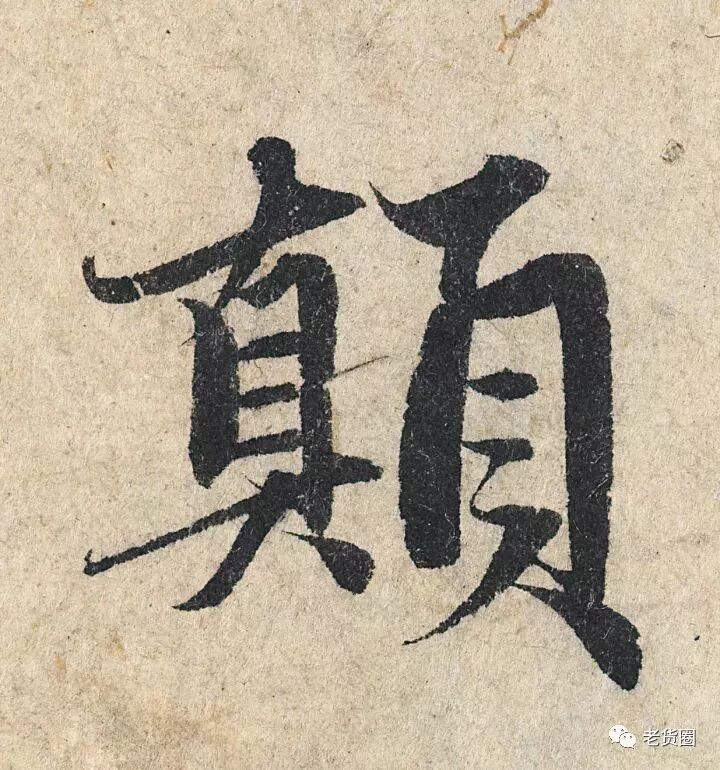 顛
老货圈